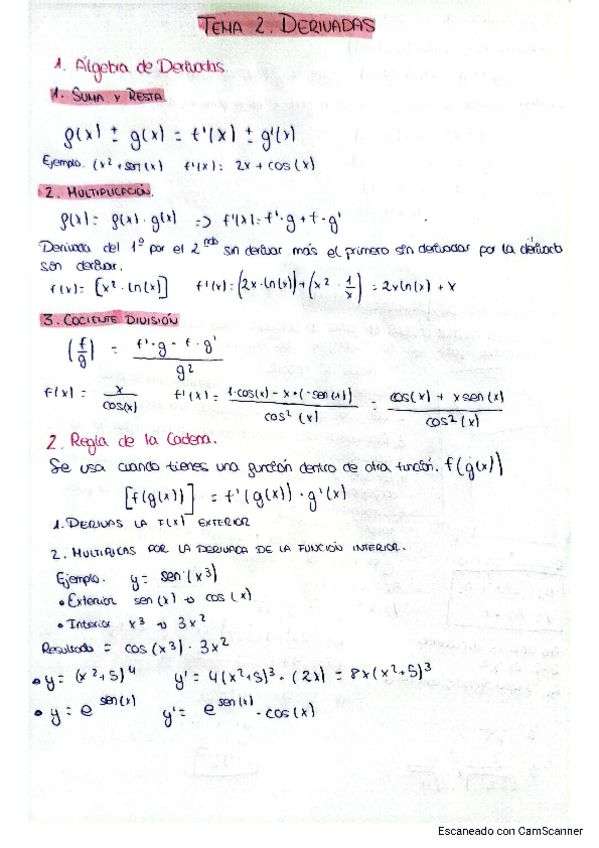 TEMA 2. DERIVADAS
1. Álgebra de Derivadas.
1. SUMA Y RESTA
f(x) ± g(x) = f'(x) ± g'(x)
Ejemplo. (x² + sen(x) f'(x): 2x + cos(x)
2. MULTIPLICACIÓN.
f(x) = f(x) · g(x) => f'(x) = f'·g + f·g'
Derivada del 1º por el 2ndo sin derivar más el primero sin derivadar por la derivada
son derivar.
f(x) = [x² · ln(x)] f'(x) = (2x·ln(x)) + (x² · 1/x) = 2xln(x) + x
3. COCIENTE DIVISIÓN
(f/g) = f'·g - f·g' / g²
f(x) = x / cos(x) f'(x) = 1·cos(x) - x·(-sen(x)) / cos²(x) = cos(x) + x sen(x) / cos²(x)
2. Regla de la Cadena.
Se usa cuando tienes una función dentro de otra función. f(g(x))
[f(g(x))] = f'(g(x)) · g'(x)
1. DERIVAS LA F(X) EXTERIOR
2. MULTIPLICAS POR LA DERIVADA DE LA FUNCIÓN INTERIOR.
Ejemplo. y = sen (x³)
• Exterior sen(x) → cos(x)
• Interior x³ → 3x²
Resultado = cos(x³) · 3x²
• y = (x²+5)⁴ y' = 4(x²+5)³ · (2x) = 8x(x²+5)³
• y = e^sen(x) y' = e^sen(x) · cos(x)
Escaneado con CamScanner